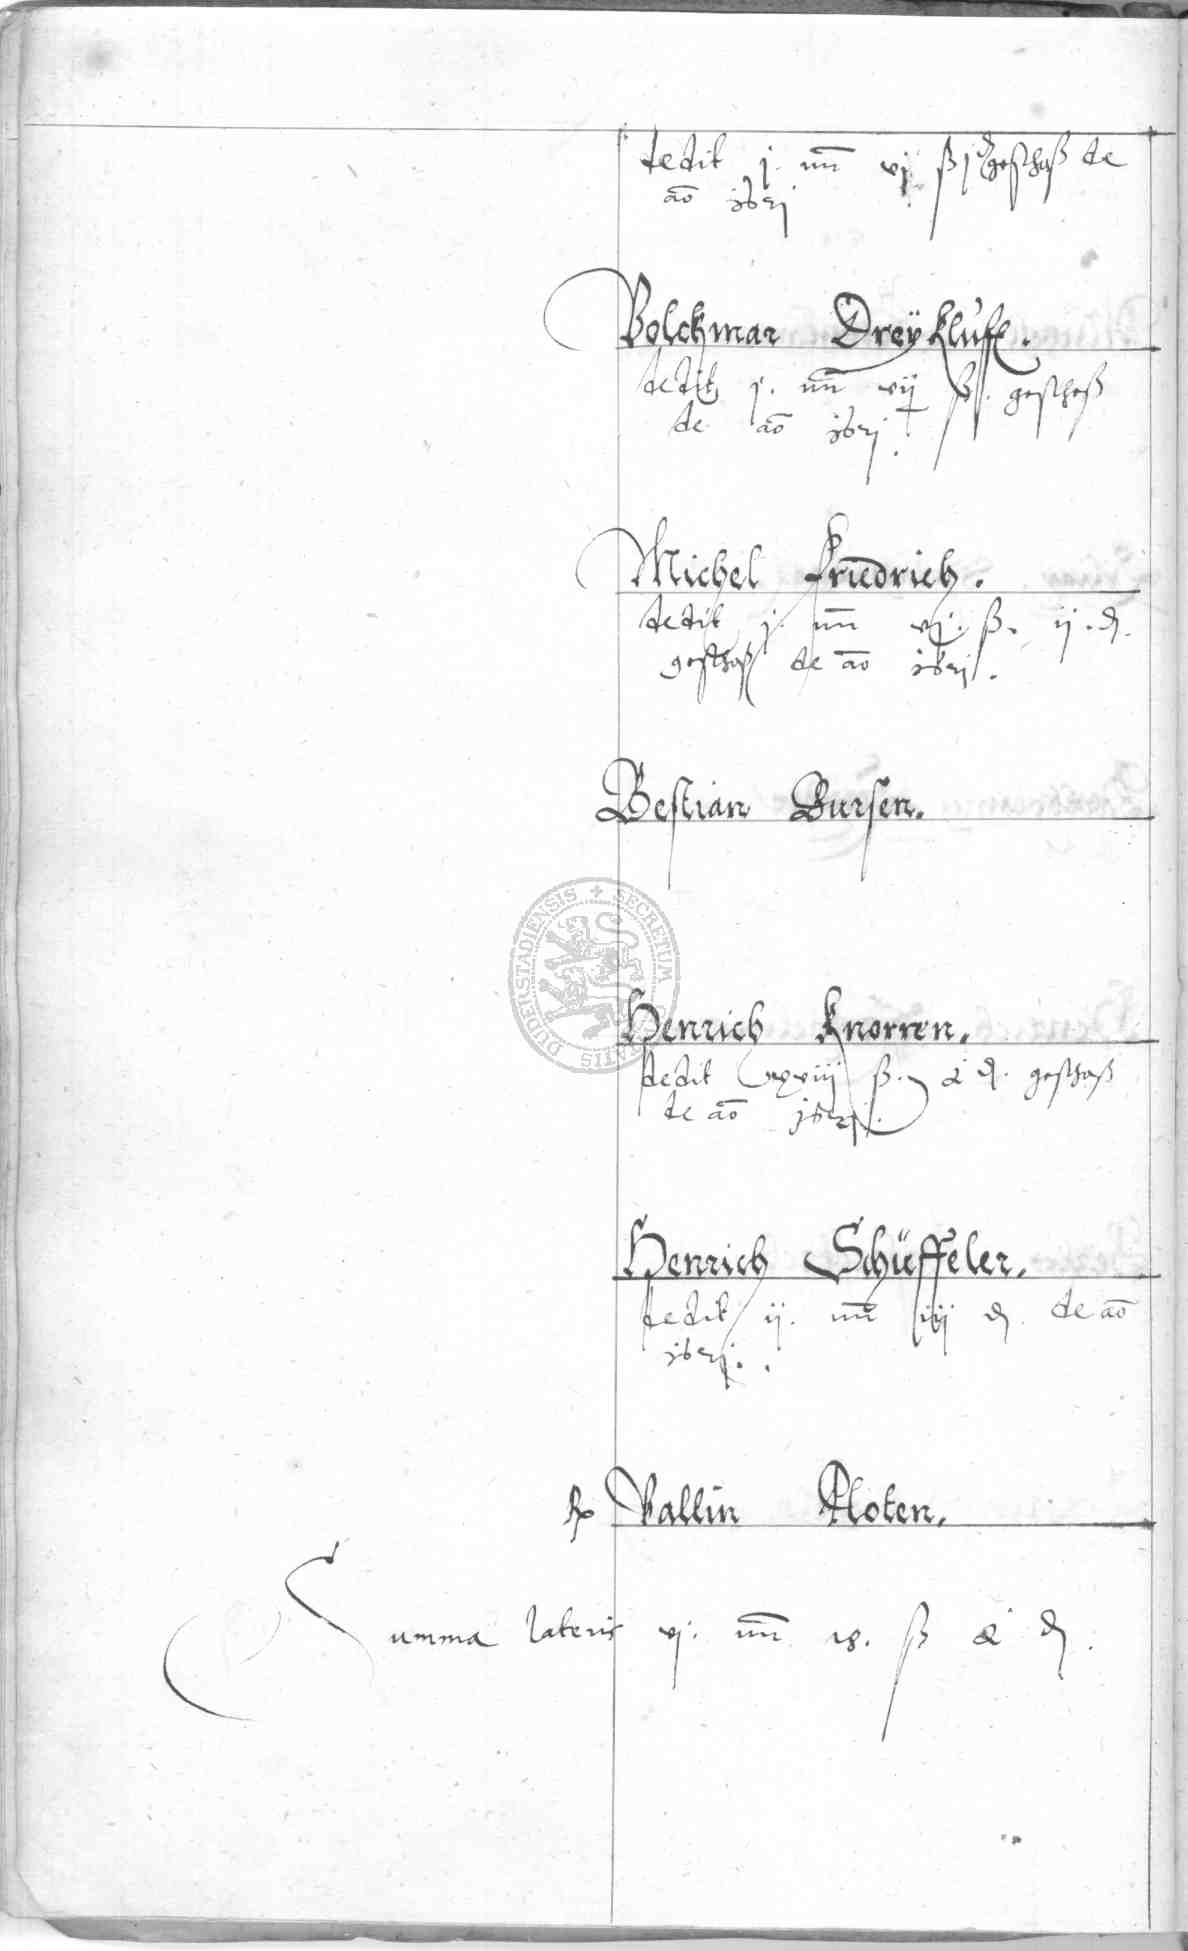 dedit j. mr vj ß j ₰ geschoß de
ao 1621
Volckmar Dreÿkluft.
dedit j. mr vij ß. geschoß
de ao 1621.
Michel Friedrich.
dedit j. mr vj. ß. ij. ₰.
geschoß de ao 1621.
Bestian Bursen.
SECRETUM DUDERSTADIENSIS
Henrich Knorren.
dedit ß. ₰. geschoß
de ao 1621.
Henrich Schüffeler.
dedit ij. mr iiij ₰ de ao
1621.
Vallin Kloten.
Summa lateris vj. mr ß ₰.